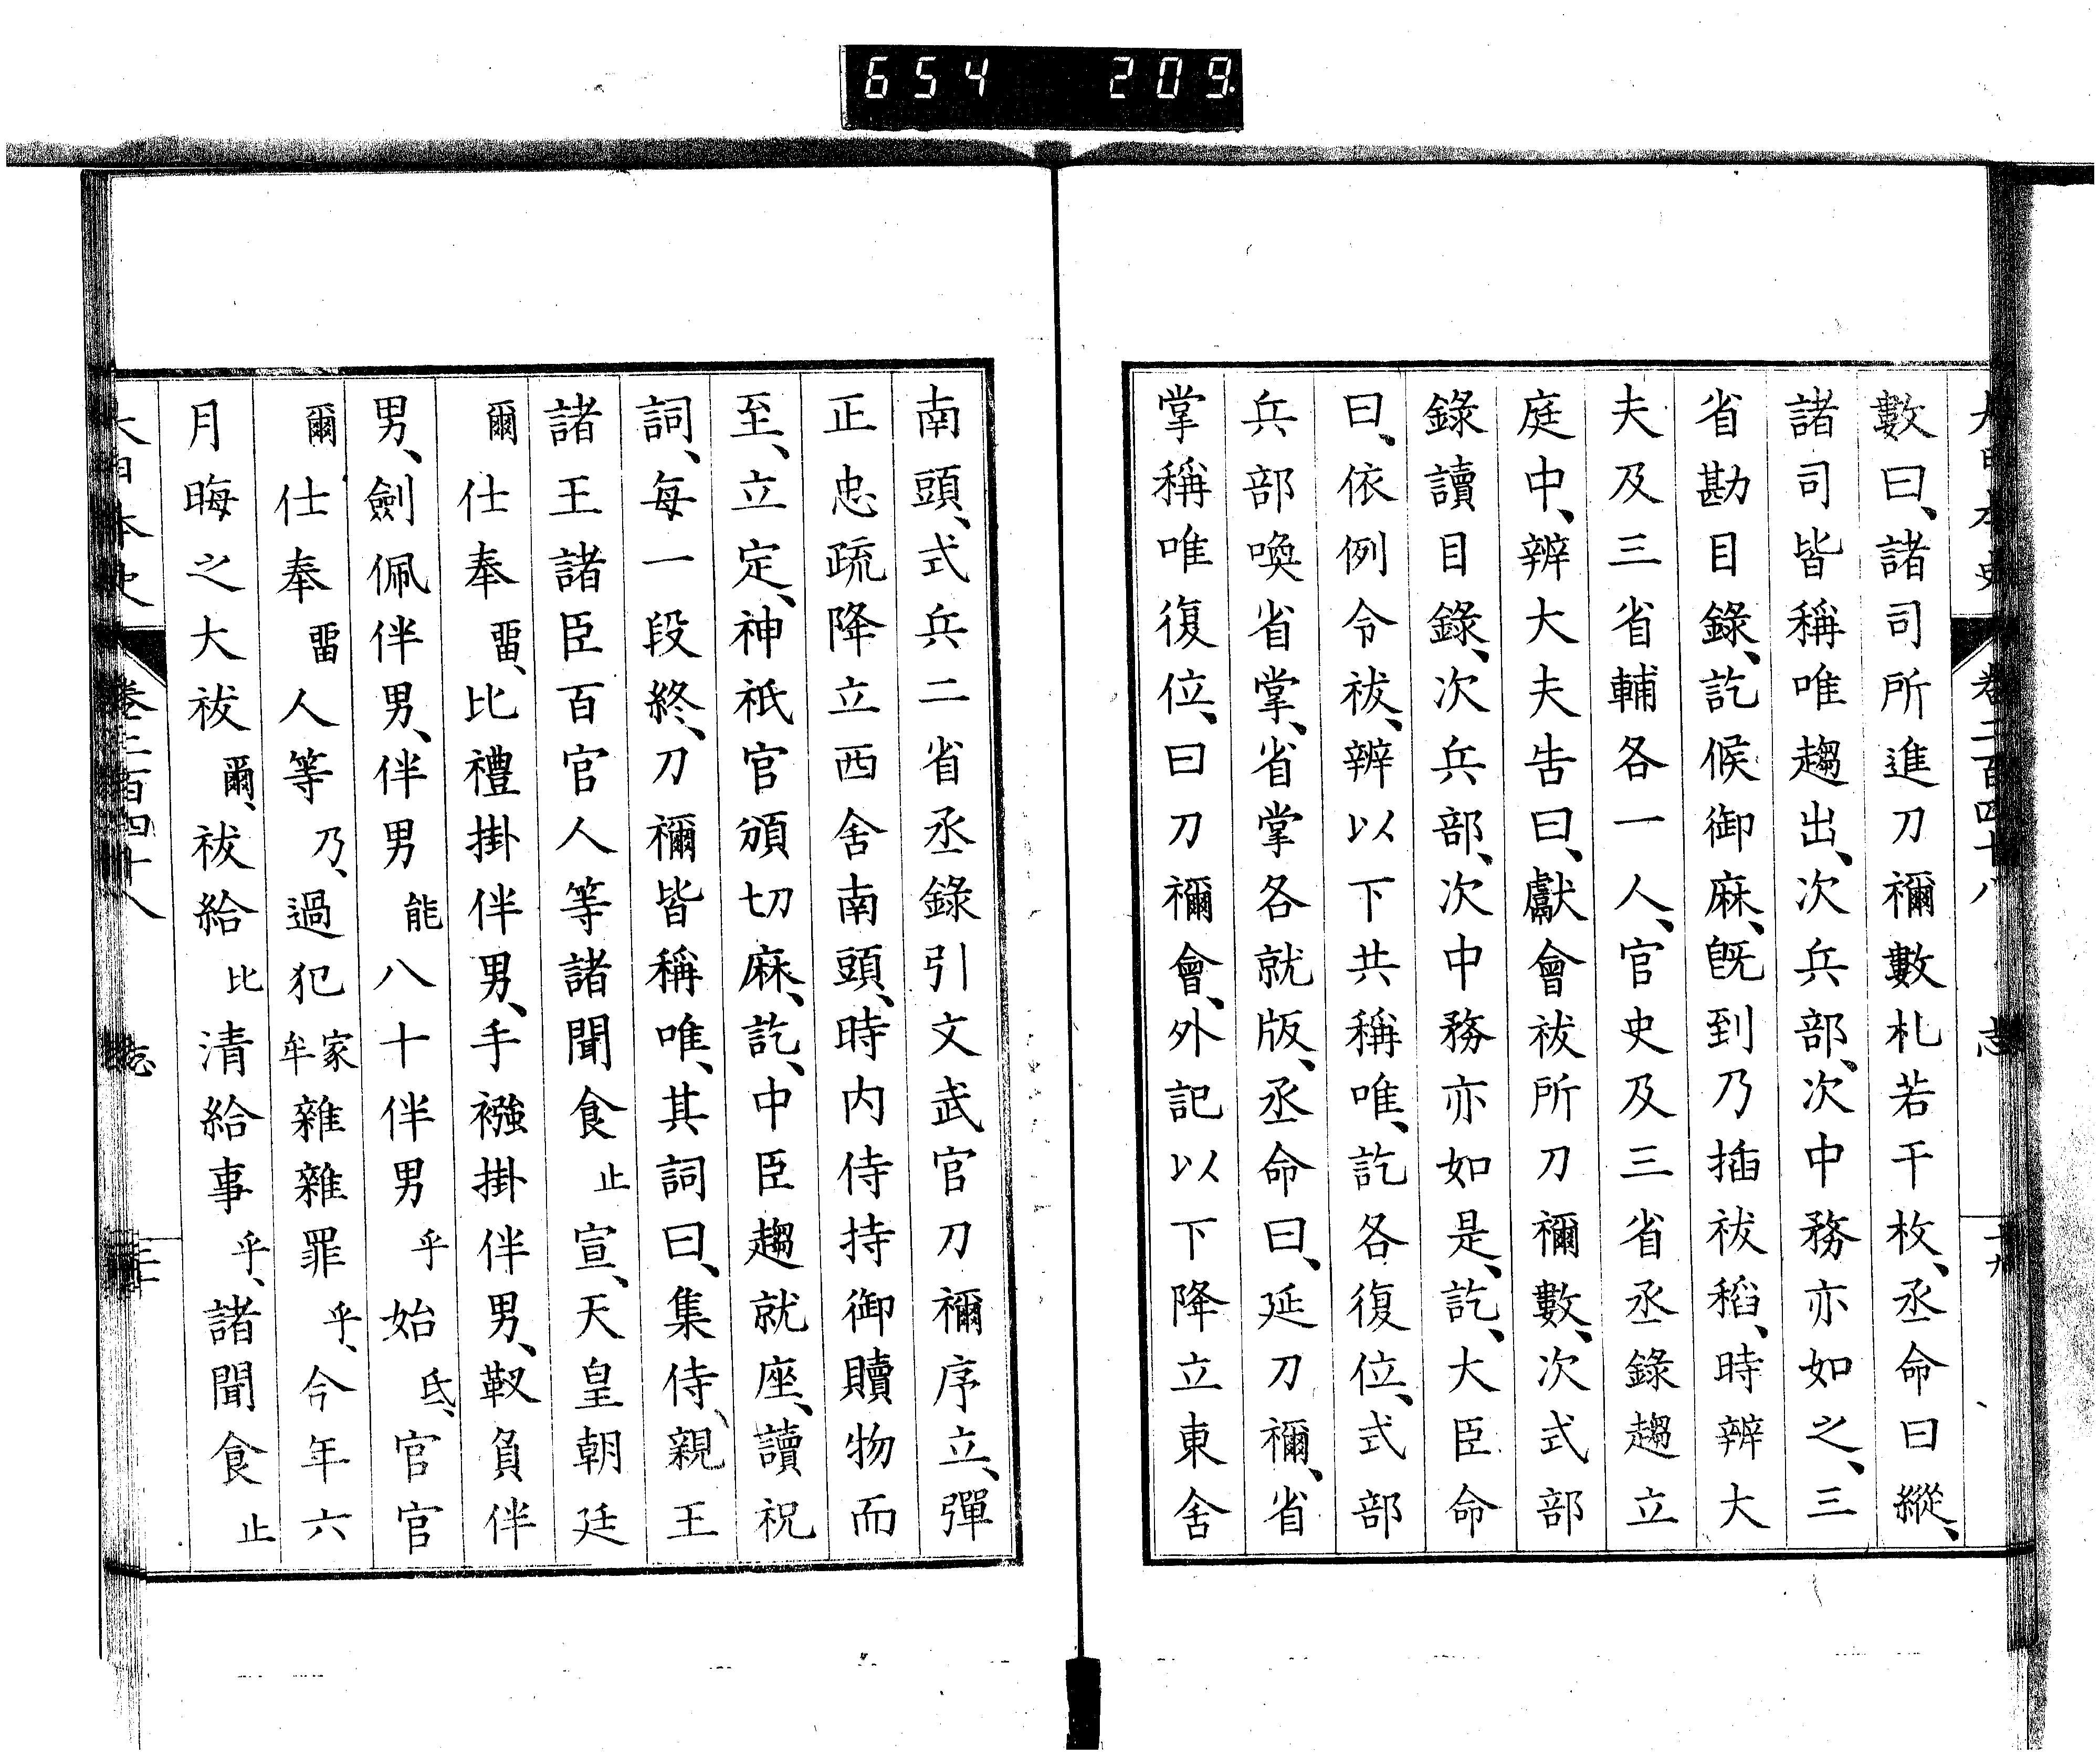 654 209
大日本史 卷三百四十八 志 二十九
數曰、諸司所進刀禰數札若干枚、丞命曰縱、
諸司皆稱唯趨出、次兵部、次中務亦如之、三
省勘目錄、訖候御麻、旣到乃插祓稻、時辨大
夫及三省輔各一人、官史及三省丞錄趨立
庭中、辨大夫告曰、獻會祓所刀禰數、次式部
錄讀目錄、次兵部、次中務亦如是、訖、大臣命
曰、依例令祓、辨以下共稱唯、訖各復位、式部
兵部喚省掌、省掌各就版、丞命曰、延刀禰、省
掌稱唯復位、曰刀禰會、外記以下降立東舍
南頭、式兵二省丞錄引文武官刀禰序立、彈
正忠疏降立西舍南頭、時内侍持御贖物而
至、立定、神祇官頒切麻、訖、中臣趨就座、讀祝
詞、每一段終、刀禰皆稱唯、其詞曰、集侍、親王
諸王諸臣百官人等諸聞食止宣、天皇朝廷
爾仕奉畱、比禮掛伴男、手襁掛伴男、靫負伴
男、劍佩伴男、伴男能八十伴男乎始氐、官官
爾仕奉畱人等乃、過犯家牟雜雜罪乎、今年六
月晦之大祓爾、祓給比清給事乎、諸聞食止
大日本史 卷三百四十八 志 三十